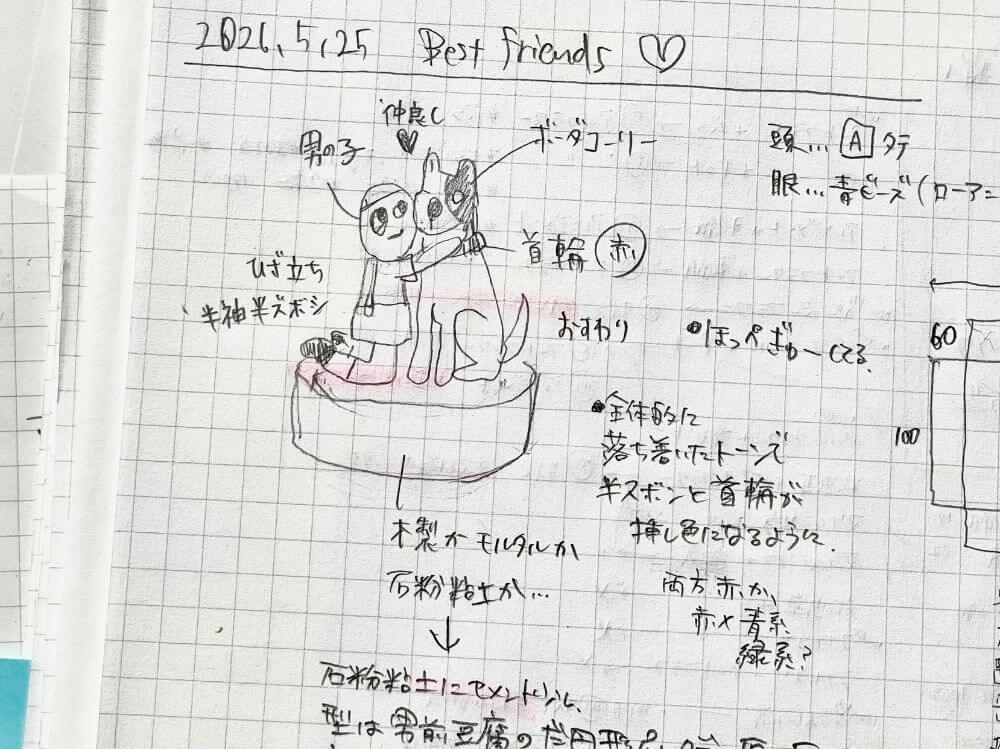 2026.5.25 Best friends ♡
仲良し
♥
男の子
ボーダコーリー
頭… A タテ
眼… 青ビーズ(ローアニ
首輪 赤
ひざ立ち
半袖半ズボン
おすわり
・ほっぺぎゅーしてる
60
100
・全体的に
落ち着いたトーンで
半ズボンと首輪が
挿し色になるように。
両方赤か、
赤×青系
緑系?
木製かモルタルか
石粉粘土か…
↓
石粉粘土にセメント
型は男前豆腐の楕円形